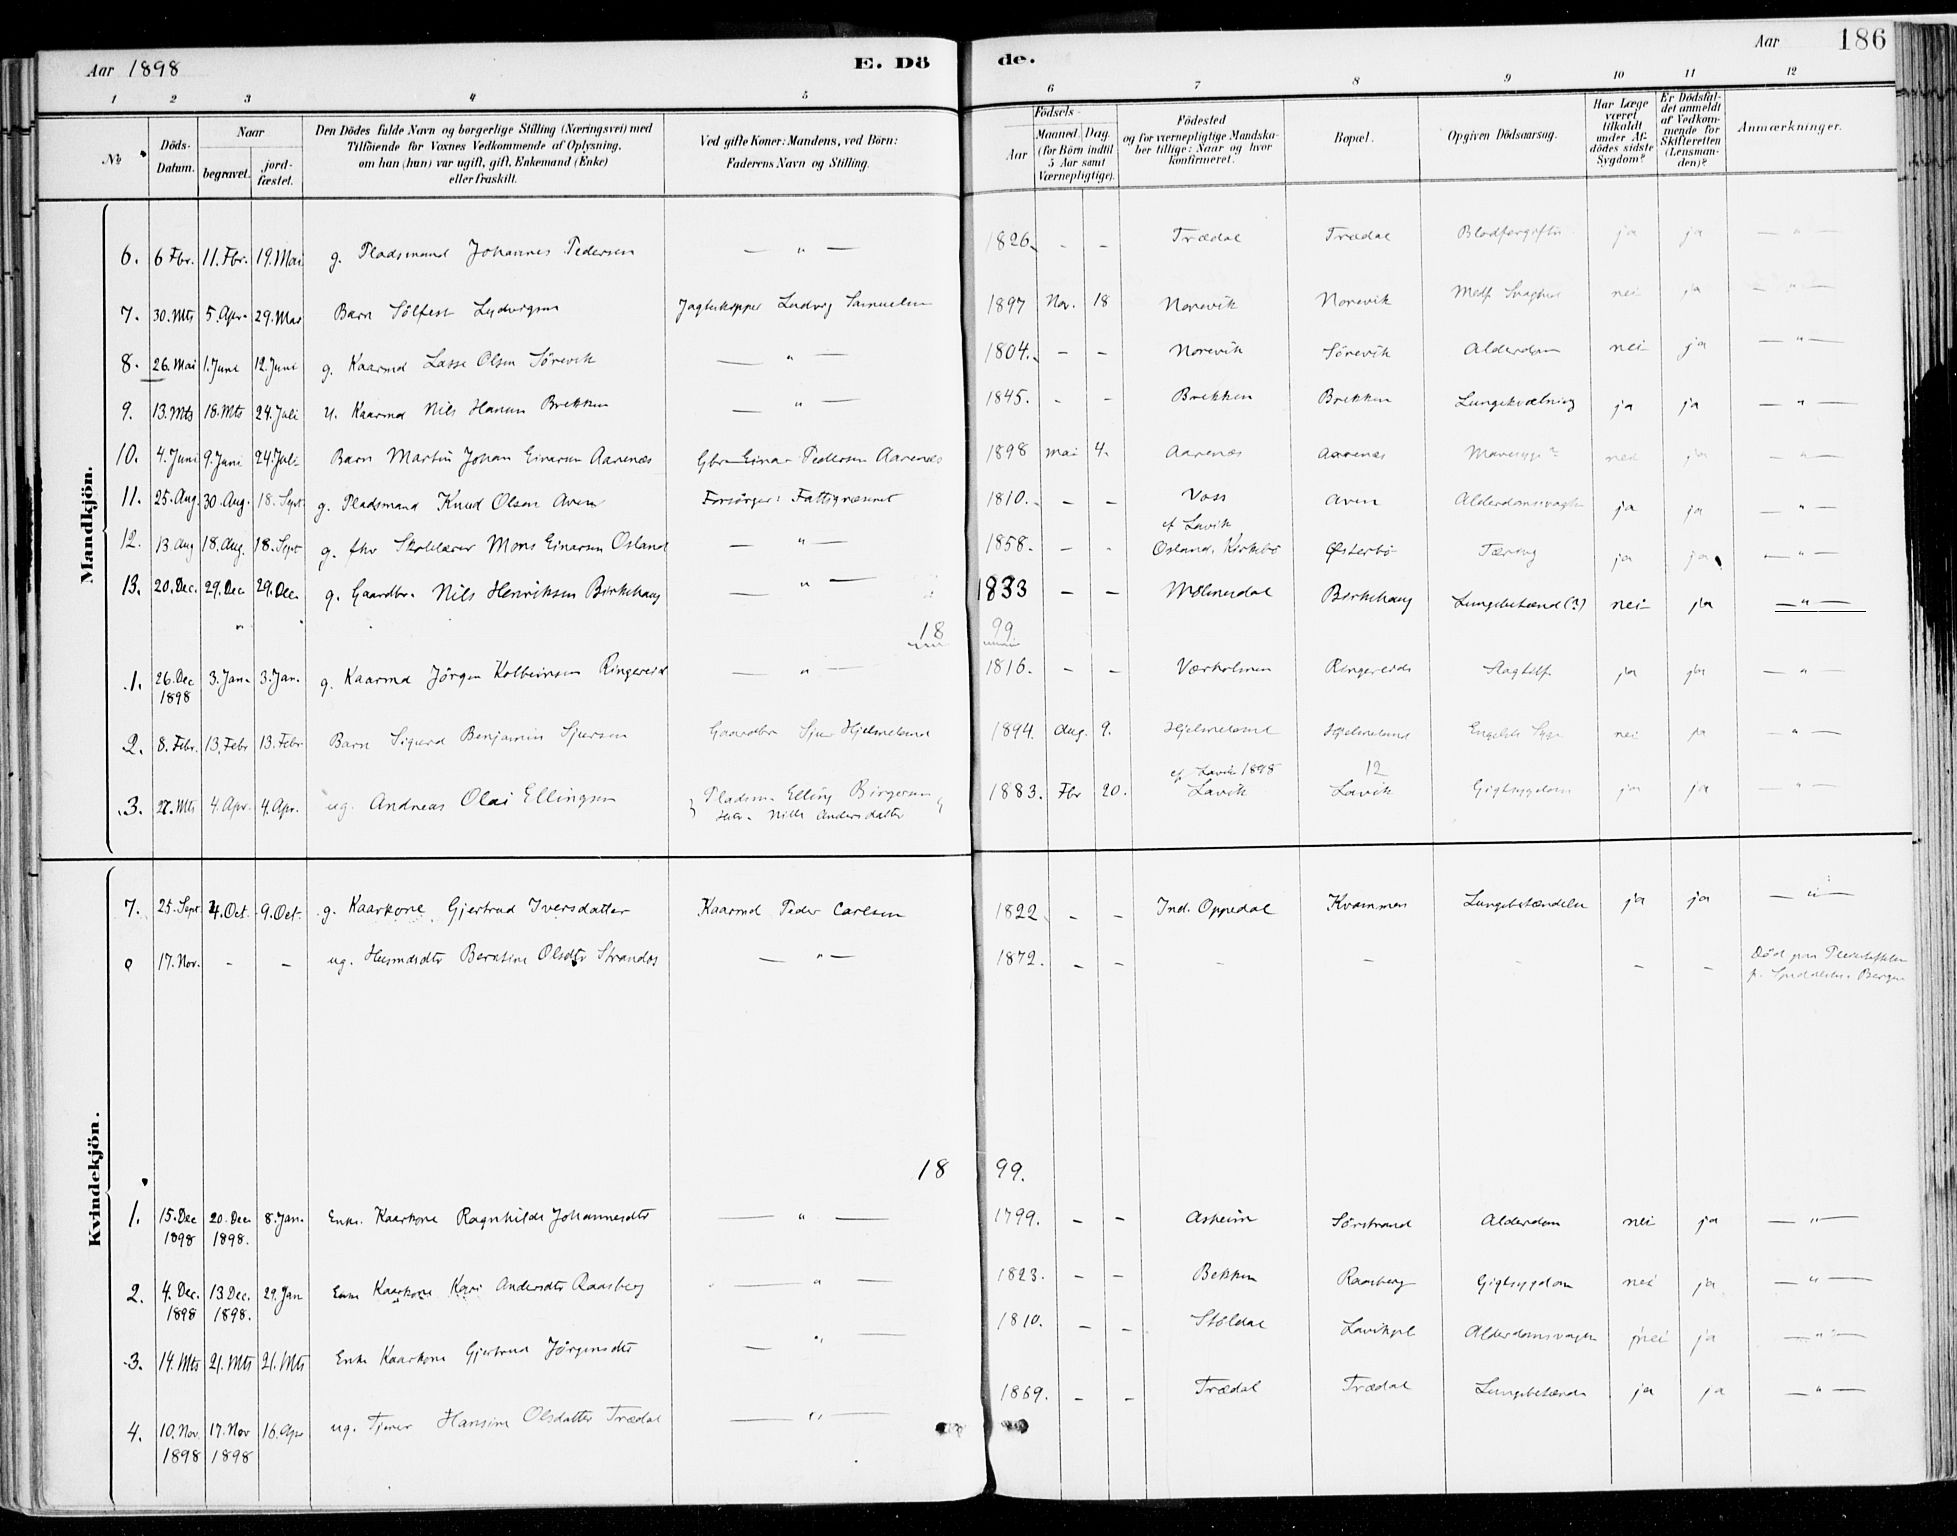 Aar 1898 E. Dö de. Aar 186
1 2 3 4 5 6 7 8 9 10 11 12
No
Döds-Datum.
Naar
begravet.
jord-fæstet.
Den Dödes fulde Navn og borgerlige Stilling (Næringsvei) med
Tilföiende for Voxnes Vedkommende af Oplysning,
om han (hun) var ugift, gift, Enkemand (Enke)
eller fraskilt.
Ved gifte Koner: Mandens, ved Börn:
Faderens Navn og Stilling.
Födsels-
Aar
Maaned. Dag.
(for Börn indtil
5 Aar samt
Værnepligtige).
Födested
og for værnepligtige Mandska-
ber tillige: Naar og hvor
konfirmeret.
Bopæl.
Opgiven Dödsaarsag.
Har Læge
været
tilkaldt
under Af-
dödes sidste
Sygdom?
Er Dödsfal-
det anmeldt
af Vedkom-
mende for
Skifteretten
(Lensman-
den)?
Anmærkninger.
Mandkjön.
6. 6 Fbr. 11. Fbr. 19. Mai g. Pladsmand Johannes Pedersen — " — 1826. - - Trædal Trædal ja ja — " —
7. 30. Mts 5. Apr. 29. Mai Barn Sölfest Ludvigsen Ludvig Samuelsen 1897 Nov. 18 Norevik Norevik nei ja — " —
8. 26. Mai 1. Juni 12. Juni g. Kaarmd Lasse Olsen Sörevik — " — 1804. - - Norevik Sörevik Alderdom nei ja — " —
9. 13. Mts 18. Mts 24. Juli Kaarmd Nils Hansen Brekken — " — 1845. - - Brekken Brekken Lungekvælning ja ja — " —
10. 4. Juni 9. Juni 24. Juli Barn Martin Johan Einarsen Aarenæs Gbr. Einar Pedersen Aarenæs 1898 mai 4. Aarenæs Aarenæs nei ja — " —
11. 25. Aug. 30. Aug. 18. Sept. g. Pladsmand Knud Olsen Aven Forsörger: Fattigvæsenet 1810. - - Voss Aven ja ja — " —
12. 13 Aug 18. Aug. 18. Sept g. fhv Skolelærer Mons Einarsen Osland — " — 1858. - - cf Lavik
Osland, Kirkebö Østerbö Tæring ja ja — " —
13. 20. Dec. 29. Dec 29. Dec. g. Gaardbr. Nils Henriksen Birkehaug — " — 1833 - - Mölmesdal Birkehaug Lungebetænd (?) nei ja — " —
18 99.
1. 26. Dec 1898 3. Jan. 3. Jan. g. Kaarmd Jörgen Kolbeinsen Ringereid — " — 1816. - - Værholmen Ringereide ja ja — " —
2. 8. Febr. 13. Febr 13. Febr Barn Sigurd Benjamin Sjursen Gaardbr Sjur Hjelmeland 1894. Aug. 9. Hjelmeland Hjelmeland Engelsk Syge nei ja — " —
3. 27. Mts 4. Apr. 4. Apr. ug. Andreas Olai Ellingsen Pladsm. Elling Birgersen
Andersdatter 1883. Fbr 20. cf Lavik 1898 12
Lavik Lavik Gigtsygdom ja ja — " —
Kvindekjön.
7. 25. Sept 4. Oct. 9. Oct. g. Kaarkone Gjertrud Iversdatter Kaarmd Peder Carlsen 1822. - - Ind. Oppedal Kvammen Lungebetændelse ja ja — " —
17. Nov. - - ug. Husmdsdtr Berntine Olsdtr Strandos — " — 1872. - - - - - - - Död paa
Bergen
18 99.
1. 15. Dec 1898 20. Dec 1898. 8. Jan. Enke. Kaarkone Ragnhilde Johannesdtr — " — 1799. - - Asheim Sörstrand Alderdom nei ja — " —
2. 4. Dec. 1898 13 Dec. 1898. 29. Jan Enke Kaarkone Kari Andersdtr Raasberg — " — 1823. - - Bekken Raasberg Gigtsygdom nei ja — " —
3. 14. Mts 21. Mts 21. Mts Enke Kaarkone Gjertrud Jörgensdtr — " — 1810. - - Stöldal nei ja — " —
4. 10. Nov. 1898 17. Nov 1898 16. Apr ug. Hansine Olsdatter Trædal — " — 1869. - - Trædal Trædal Lungebetænd. ja ja — " —